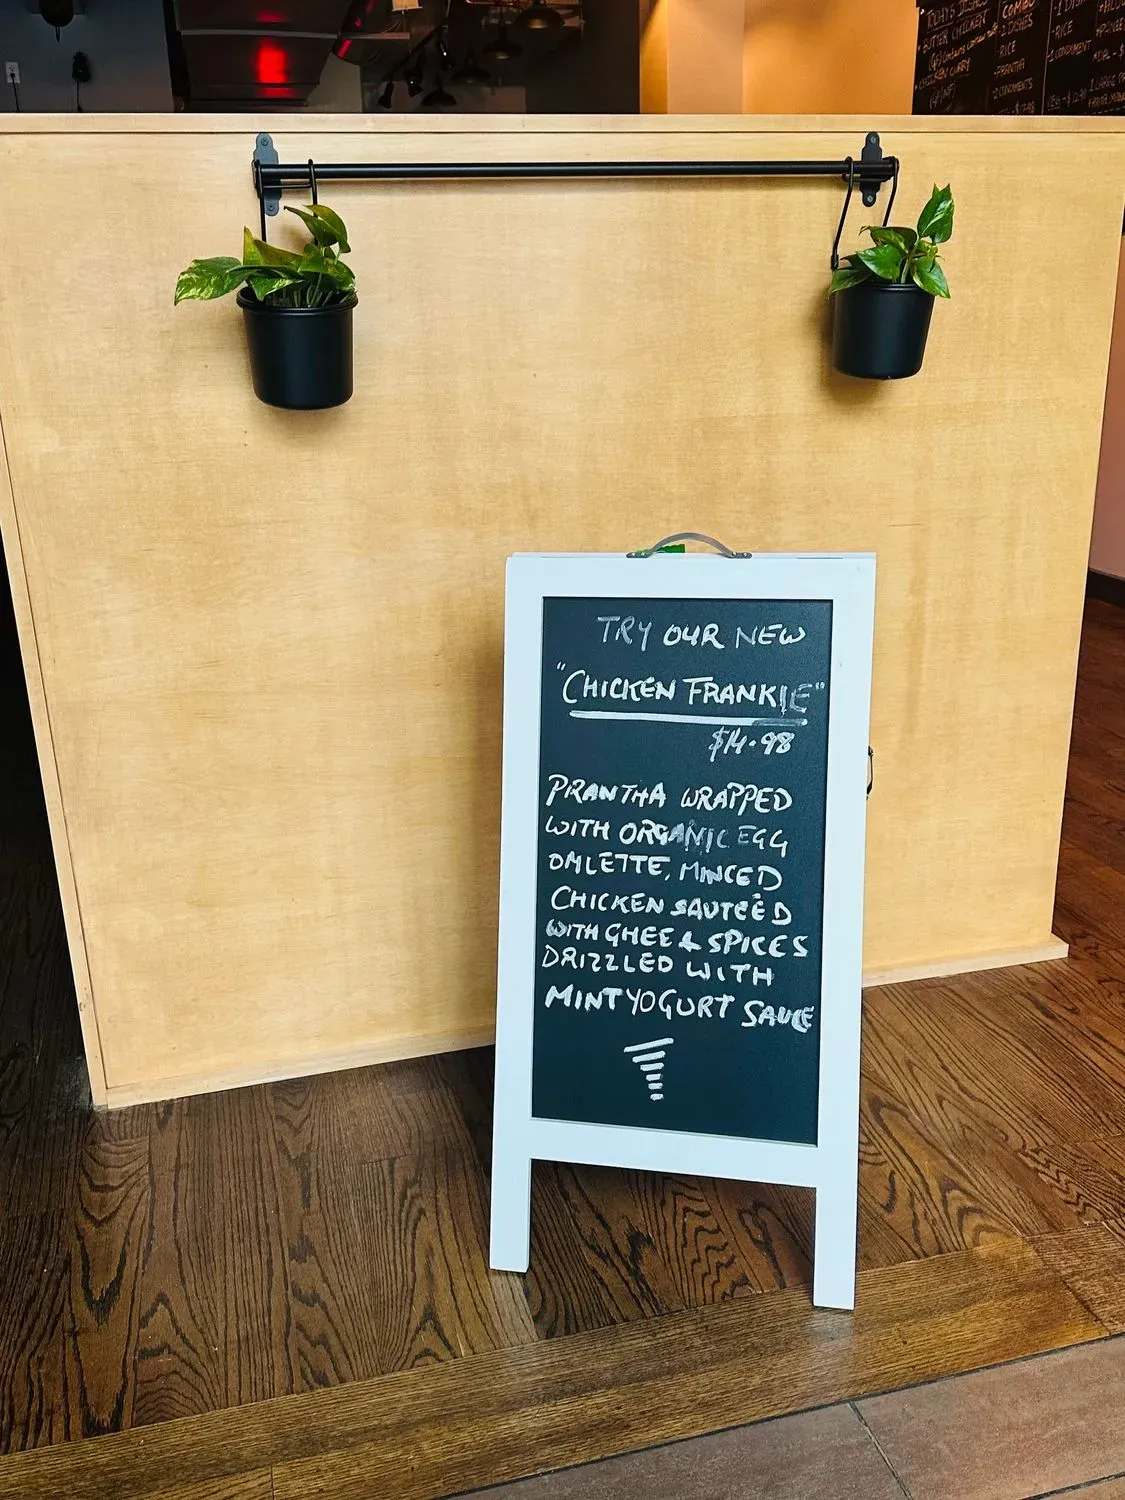 TODAY'S DISHES
* BUTTER CHICKEN
CHICKEN CURRY
(GF/NF)
COMBO
2 DISHES
-RICE
-PRANTHA
-2 CONDIMENTS
-1 DISH
-RICE
-1 CONDIMENT
TRY OUR NEW
"CHICKEN FRANKIE"
$14.98
PRANTHA WRAPPED
WITH ORGANIC EGG
OMLETTE, MINCED
CHICKEN SAUTEED
WITH GHEE & SPICES
DRIZZLED WITH
MINT YOGURT SAUCE